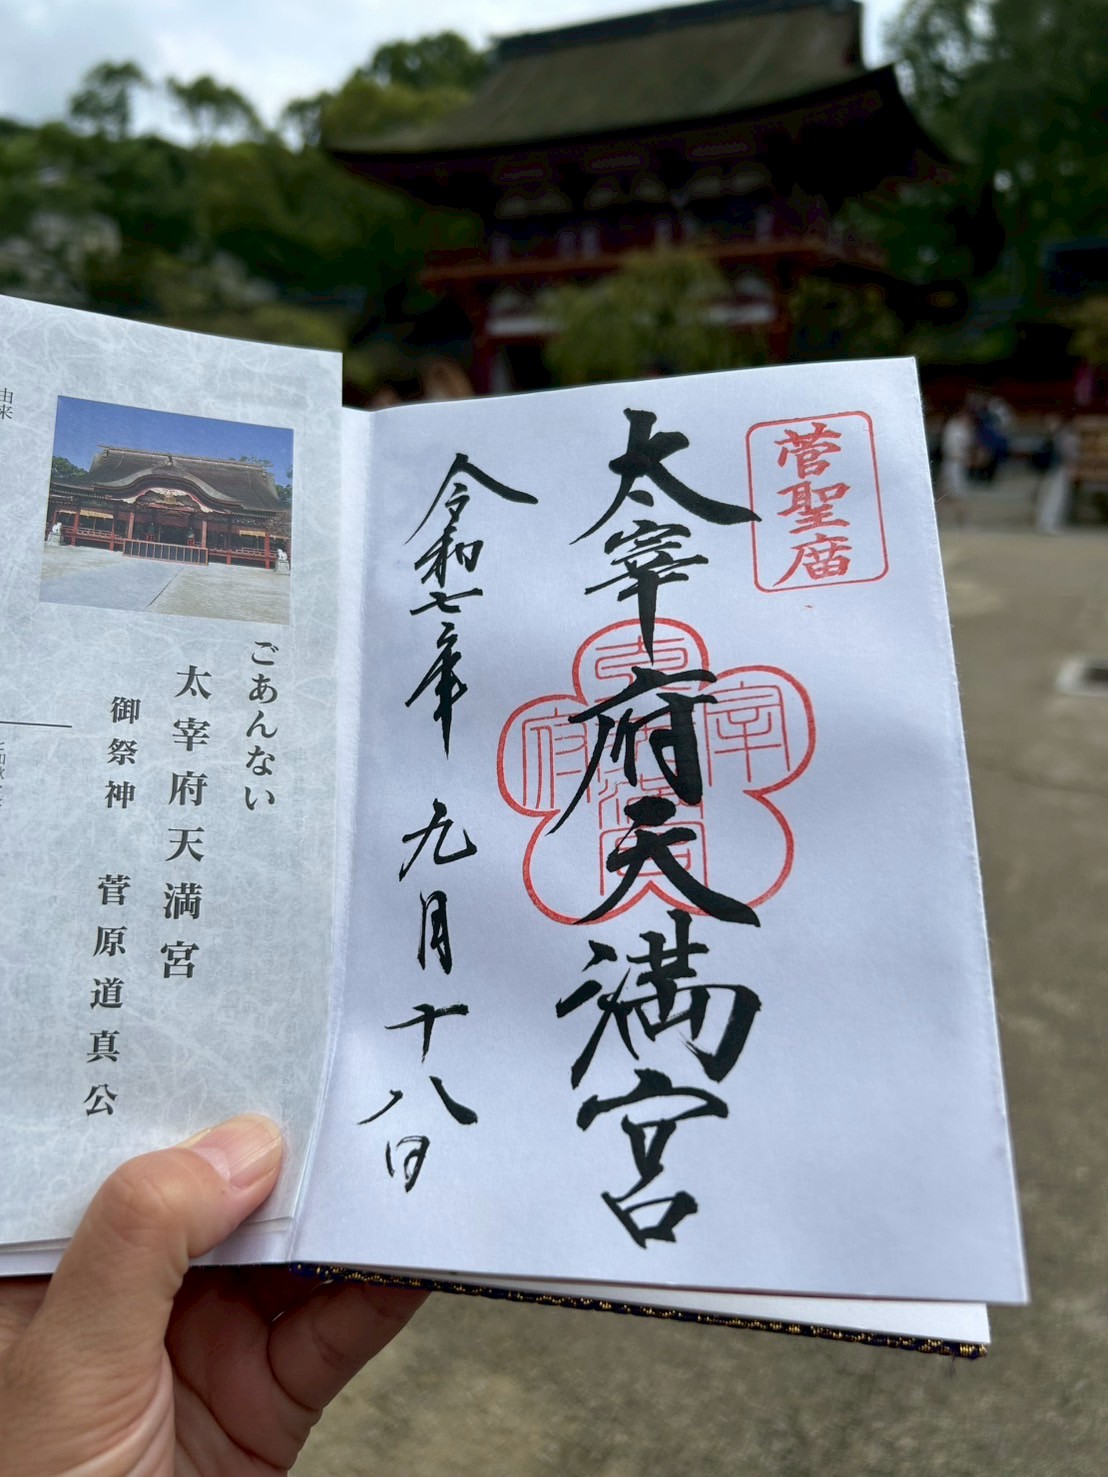 菅聖庿
太宰府天満宮
太宰府天満宮
令和七年 九月十八日
ごあんない
太宰府天満宮
御祭神 菅原道真公
由来